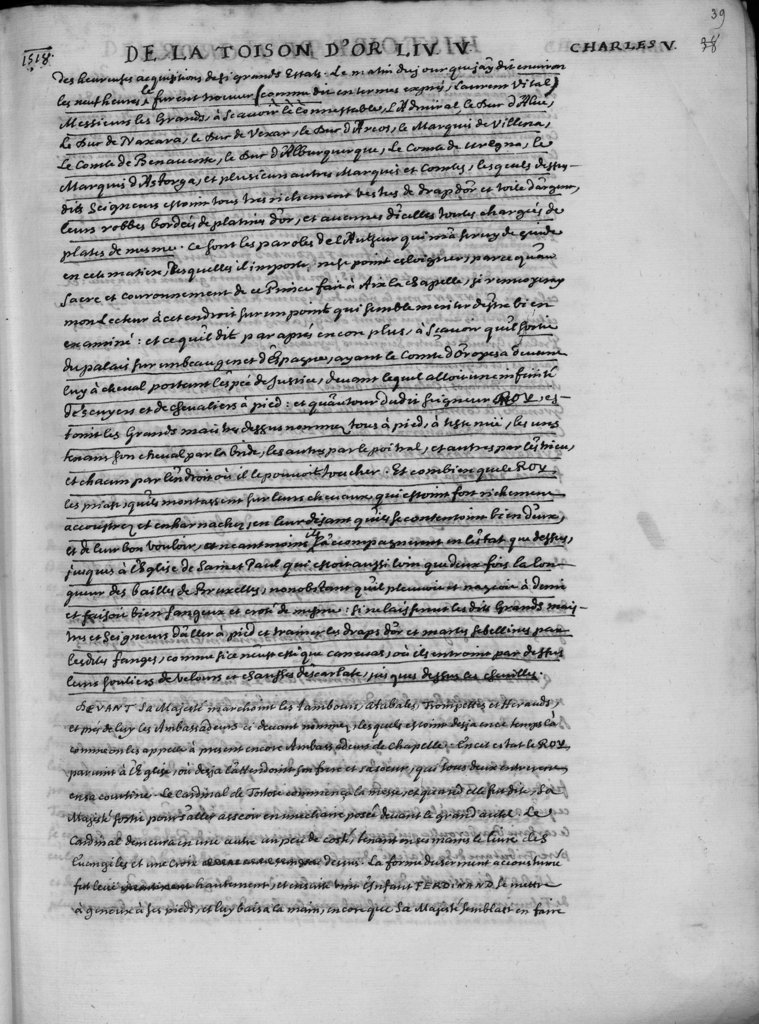 39
1518.
DE LA TOISON D'OR LIV. V.
CHARLES V.
38
des heureuses acquisitions de si grands Estats. Le matin du jour que j'ay dit environ
les neuf heures, le furent trouver (comme dit en termes exprés, Laurent Vital)
Messieurs les Grands, à Sçavoir le Connestable, L'Admiral, le Duc d'Albe,
Le Duc de Naxara, le Duc de Vexar, le Duc d'Arcos, le Marquis de Villena,
Le Comte de Benavente, le Duc d'Alburquerque, Le Comte de Uregna, le
Marquis d'Astorga, et plusieurs autres Marquis et Comtes, lesquels dessus-
dits Seigneurs estoint tous tres richement vestus de drap d'or et toile d'argent,
leurs robbes bordées de platine d'or, et aucunes d'icelles toutes chargées de
plates de mesme. Ce sont les paroles de l'Autheur qui m'a servy de guide
en cete matiere, desquelles il importe, ne se point esloigner, parce qu'au
Sacre et couronnement de ce Prince fait à Aix la Chapelle, je renvoyeray
mon Lecteur à cet endroit sur un point qui semble meriter d'estre bien
examiné: et ce qu'il dit par aprés encor plus, à Sçavoir qu'il sortit
du palais sur un beau genet d'Espagne, ayant le Comte d'Oropesa devant
luy à cheval portant l'espée de Justice, devant lequel alloit une infinité
d'escuyers et de chevaliers à pied: et qu'autour dudit seigneur ROY, es-
toint les Grands maistres dessus nommez tous à pied, à teste nüe, les uns
tenans son cheval par la bride, les autres par le poitral, et autres par l'estrieu,
et chacun par l'endroit où il le pouvoit toucher. Et combien que le ROY
les priast qu'ils montassent sur leurs chevaux, qui estoint fort richement
accoustrez et enharnachez, en leur disant qu'il se contentoit bien d'eux,
et de leur bon vouloir, et neantmoins ils l'accompagnerent en l'estat que dessus,
jusques à l'Eglise de Sainct Paul qui estoit aussi loin que deux fois la lon-
gueur des bailles de Bruxelles, nonobstant qu'il pleuvoit et negeoit à demi
et faisoit bien fangeux et croté de mesme: si ne laisserent les dits Grands mais-
tres et Seigneurs d'aller à pied et trainer les draps d'or et martes sebellines par
lesdites fanges, comme si ce n'eust esté que canevas, où ils entroint par dessus
leurs souliers de velours et chausses d'escarlate, jusques dessus les chevilles.
DEVANT Sa Majesté marchoint les tambours, atabales, Trompettes et Herauds,
et prés de luy les Ambassadeurs ci devant nommez, lesquels estoint desja en ce temps là
comme on les appelle à present encore Ambassadeurs de Chapelle: En cet estat le ROY
parvint à l'Eglise, où desja l'attendoint son frere et sa soeur, qui tous deux entrerent
en sa courtine. Le Cardinal de Tortose commença la messe, et quand elle fut dite, Sa
Majesté sortit pour s'aller asseoir en une chaire posée devant le grand autel. Le
Cardinal demeura en une autre un peu de costé, tenant en ses mains le livre des
Evangiles et une Croix dessus. La forme du serment accoustumé
fut leüe hautement, et ensuite vint l'Enfant FERDINAND se mettre
à genoux à ses pieds, et luy baisa la main, encore que Sa Majesté semblast en faire